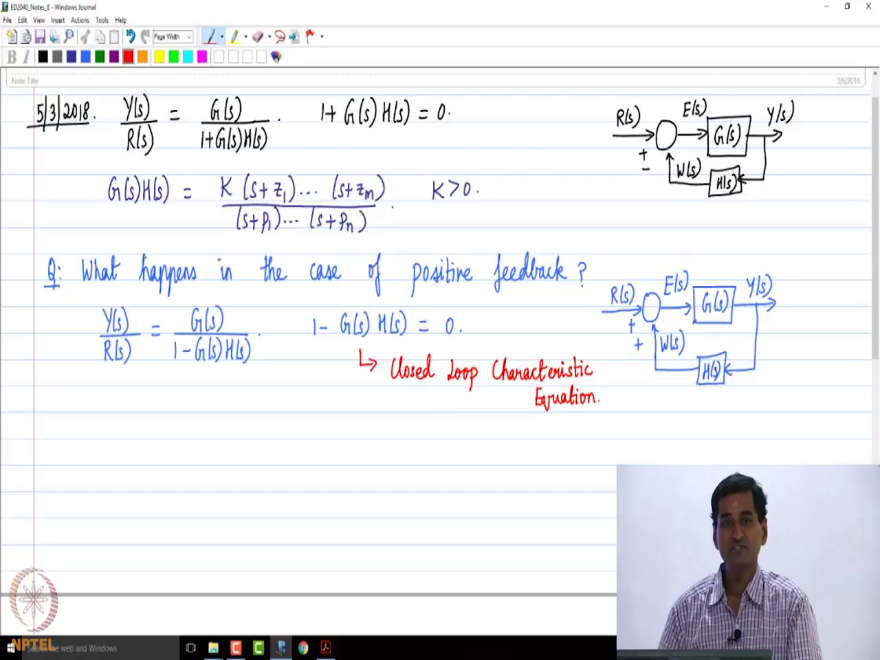 ED2040_Notes_8 - Windows Journal
File Edit View Insert Actions Tools Help
Page Width
B I
Note Title
3/5/2018
5/3/2018. Y(s)/R(s) = G(s)/(1+G(s)H(s)). 1+ G(s) H(s) = 0.
R(s) E(s) G(s) Y(s)
+ - W(s) H(s)
G(s)H(s) = K (s+z₁)... (s+zₘ)/((s+p₁)... (s+pₙ)). K>0.
Q: What happens in the case of positive feedback?
R(s) E(s) G(s) Y(s)
+ + W(s) H(s)
Y(s)/R(s) = G(s)/(1-G(s)H(s)). 1- G(s) H(s) = 0.
↳ Closed Loop Characteristic
Equation.
NPTEL
the web and Windows